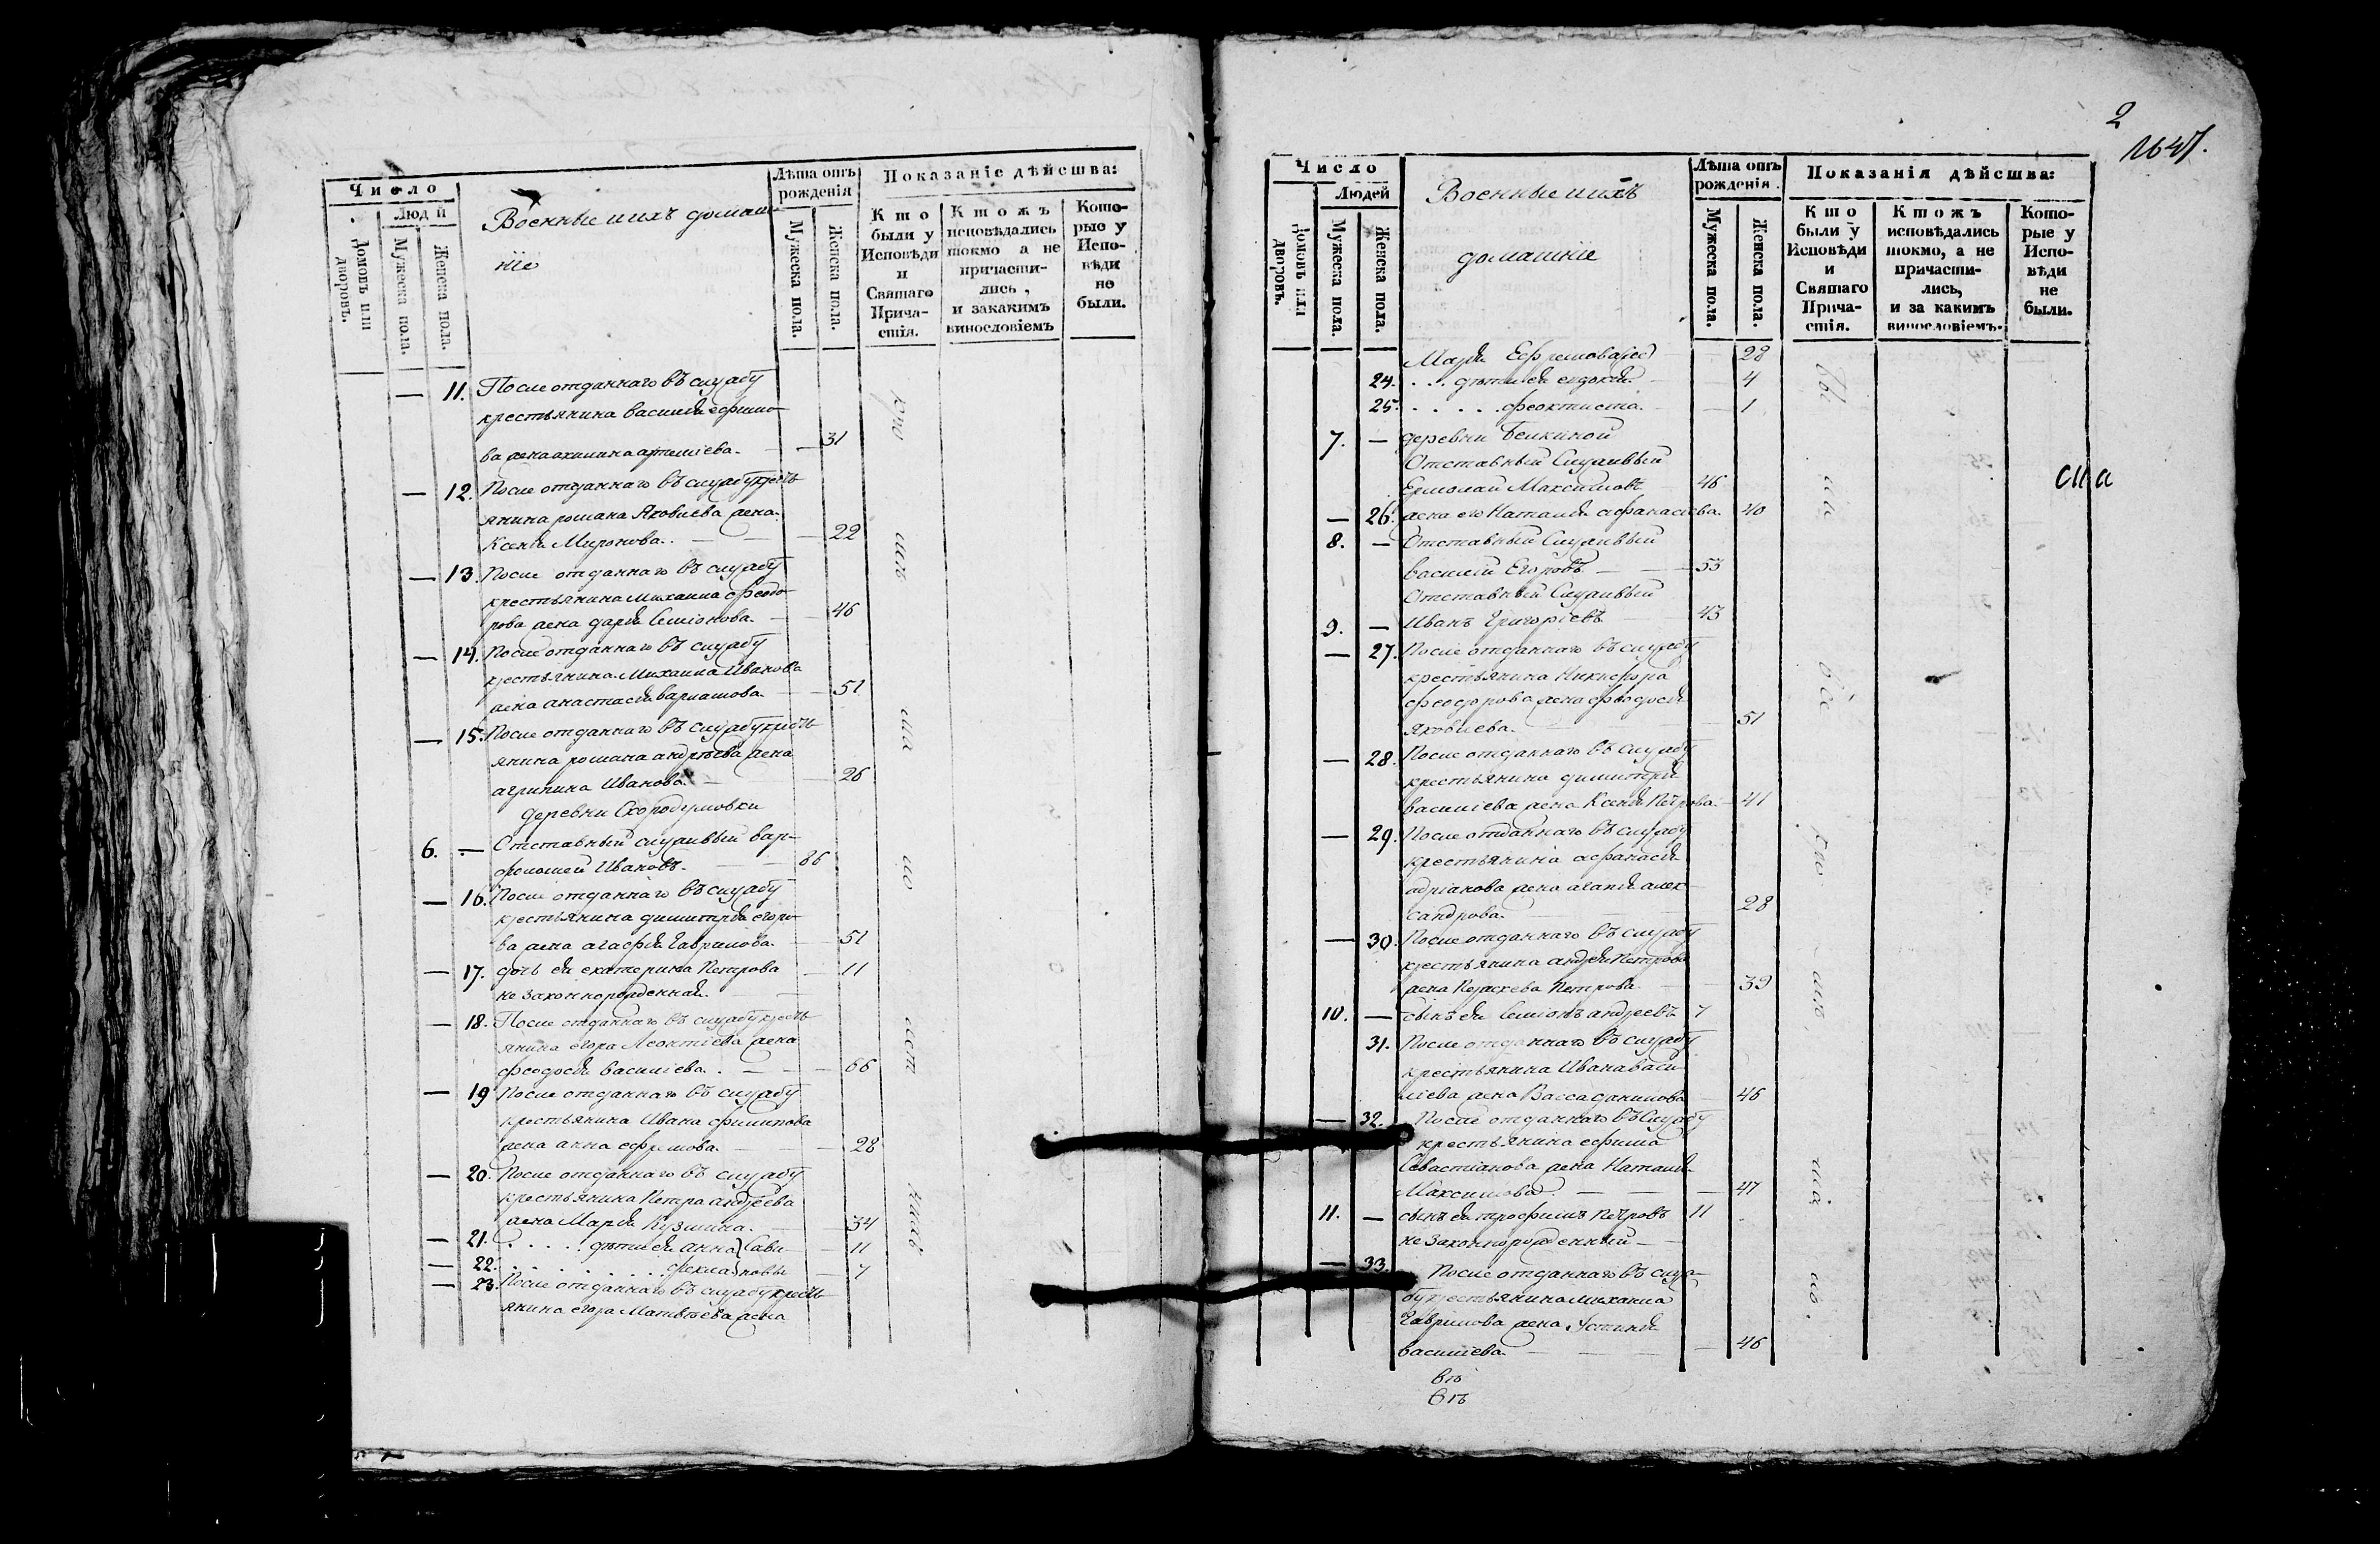 Число
Людей
Домовъ или дворовъ.
Мужеска пола.
Женска пола.
Военные ихъ домаш-
ніе
Лѣта отъ рожденія
Мужеска пола.
Женска пола.
Показаніе дѣйства:
Кто были у Исповѣди и Святаго Прича-стія.
Ктожъ исповѣдались токмо а не причасти-лись, и закакимъ винословіемъ
Кото-рые у Испо-вѣди не были.
— 11. После отданнаго въ службу
крестьянина василія ефимо-
ва жена акилина артеміева. — 31
— 12. После отданнаго въ службу кресть
янина романа Яковлева жена
Ксенія Миронова. — 22
— 13. После отданнаго въ службу
крестьянина михаила феодо-
рова жена дарія Семіонова. — 46
— 14. После отданнаго въ службу
крестьянина Михаила Иванова
жена анастасія варламова. — 51
— 15. После отданнаго въ службу кресть
янина романа андреева жена
агрипина Иванова. — 26
деревни
6. — Отставный служивый вар-
фоломей Ивановъ. — 86
— 16. После отданнаго въ службу
крестьянина димитрія егоро-
ва жена агафія Гаврилова. — 51
— 17. дочь ея екатерина Петрова — 11
не законнорожденная.
— 18. После отданнаго въ службу кресть
янина егора Леонтіева жена
феодосія василіева. — 66
— 19 После отданнаго въ службу
крестьянина Ивана филипова
жена анна ефремова. — 28
— 20. После отданнаго въ службу
крестьянина Петра андреева
жена Марія Кузмина. — 34
— 21. дѣти ея анна Сави- 11
— 22. фекла новы — 7
— 23. После отданнаго въ службу кресть
янина егора Матвѣева жена
2
1647.
Число
Людей
Домовъ или дворовъ.
Мужеска пола.
Женска пола.
Военные ихъ
домашніе
Лѣта отъ рожденія.
Мужеска пола.
Женска пола.
Показанія дѣйства:
Кто были у Исповѣди и Святаго Прича-стія.
Ктожъ исповѣдались токмо, а не причасти-лись, и за какимъ винословіемъ.
Кото-рые у Испо-вѣди не были.
Марія Ефремова 28
24. . . дѣти ея евдокія — 4
25. . . . . . феоктиста. — 1
7. — деревни Белкиной
Отставный Служивый
Ермолай Максимовъ 46
— 26. жена его Наталія афанасіева. 40
8. — Отставный Служивый
василій Егоровъ. — 53
Отставный Служивый
9. — Иванъ Григоріевъ 43
— 27. После отданнаго въ службу
крестьянина Никифора
феодорова жена феодосія
Яковлева. — 51
— 28. После отданнаго въ службу
крестьянина димитрія
василіева жена Ксенія Петрова. — 41
— 29. После отданнаго въ службу
крестьянина афанасія
адріанова жена агапія алек-
сандрова. 28
— 30. После отданнаго въ службу
крестьянина андрея Петрова
жена Параскева Петрова. 39
10. — сынъ ея Семіонъ андреевъ 7
31. После отданнаго въ службу
крестьянина Ивана васи-
ліева жена Васса данилова 46
— 32. После отданнаго въ Службу
крестьянина ефима
Севастіанова жена Наталія
Максимова. — 47
11. — сынъ ея трофимъ Петровъ 11
не законнорожденный —
— 33. После отданнаго въ служ-
бу крестьянина михаила
Гаврилова жена Устинія
василіева. — 46